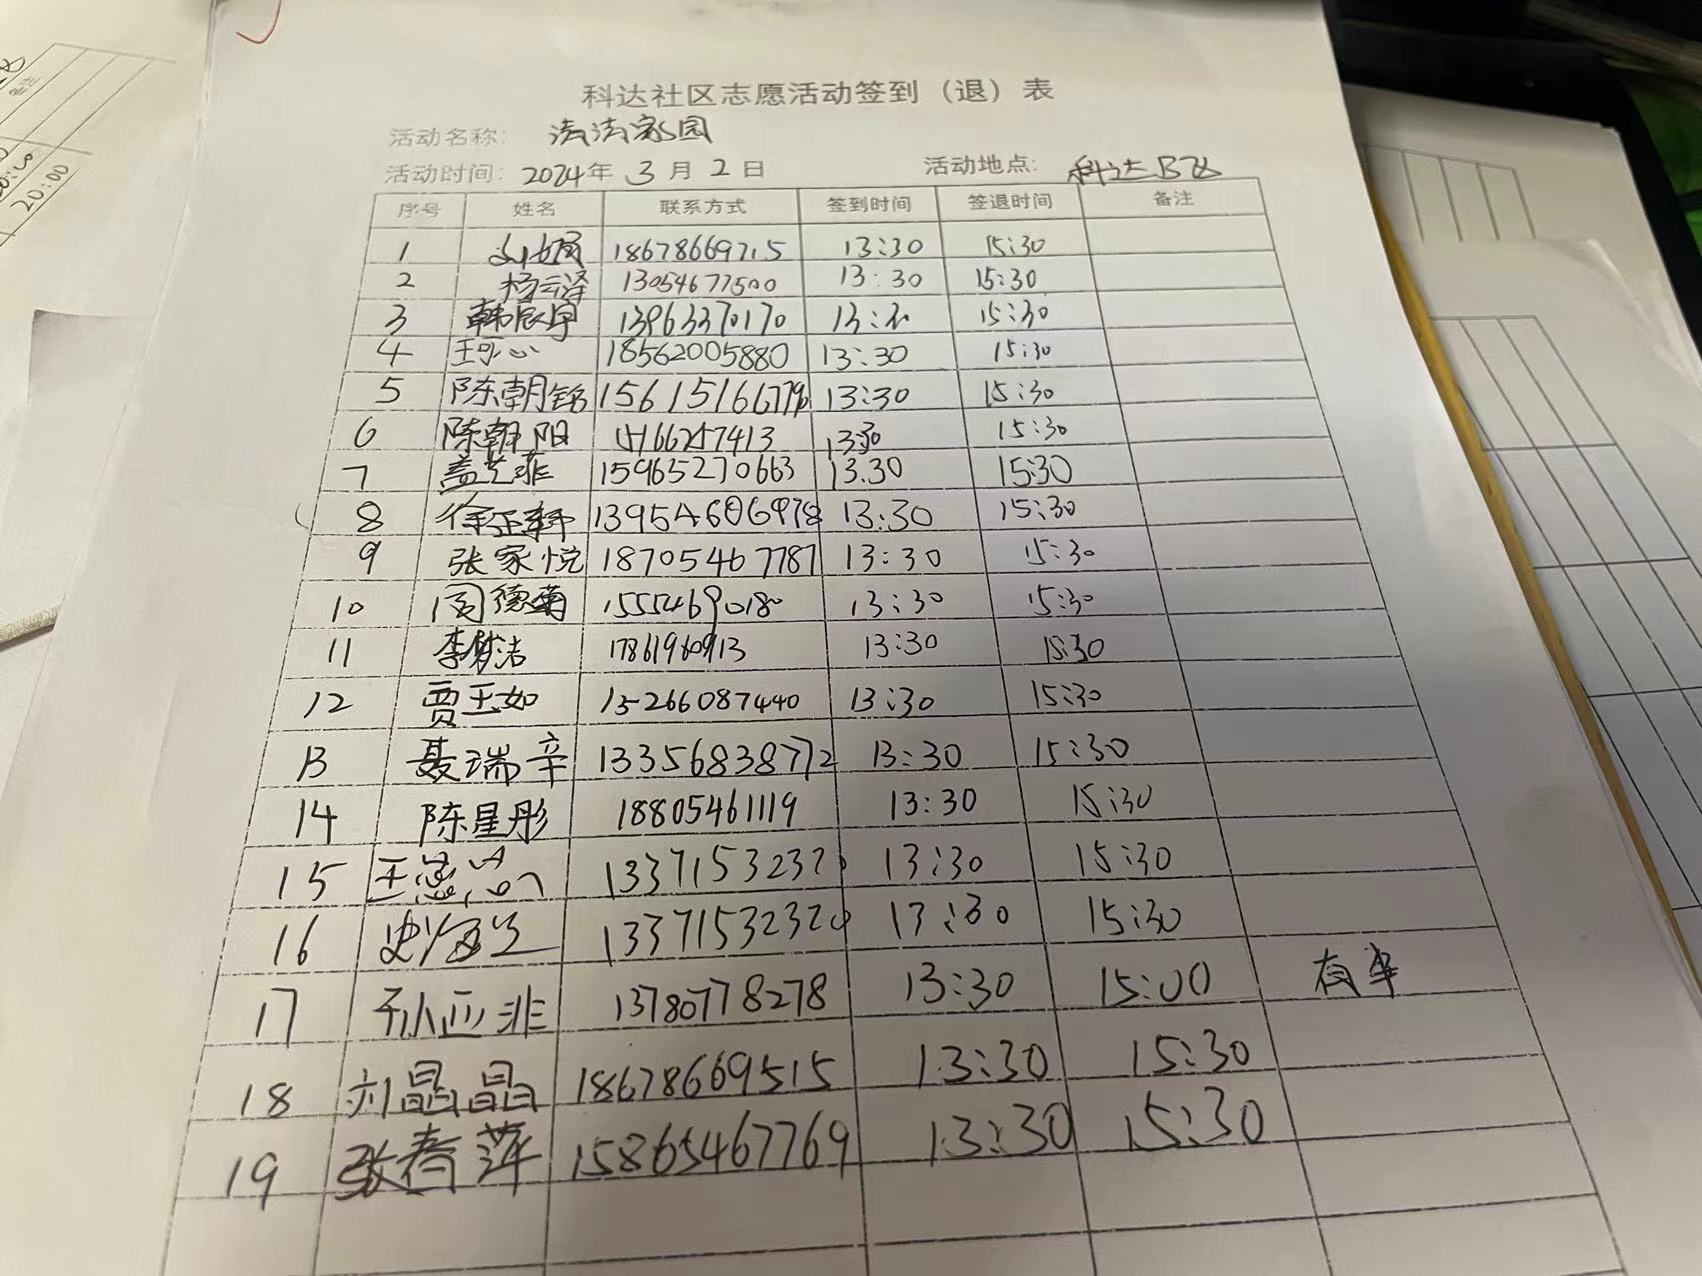 科达社区志愿活动签到（退）表
活动名称： 清洁家园
活动时间：2024年 3 月 2 日 活动地点: 科达B区
序号 姓名 联系方式 签到时间 签退时间 备注
1 18678669715 13:30 15:30
2 杨云泽 13054677500 13:30 15:30
3 韩辰宇 13963370170 13:30 15:30
4 王可心 18562005880 13:30 15:30
5 陈朝铭 13:30 15:30
6 陈朝阳 13:30 15:30
7 盖艺菲 15965270663 13.30 15:30
8 徐正轩 13:30 15:30
9 张家悦 18705467787 13:30 15:30
10 闫德菊 15554690180 13:30 15:30
11 李梦洁 17861960913 13:30 15:30
12 贾玉如 15266087440 13:30 15:30
13 聂瑞辛 13356838772 13:30 15:30
14 陈星彤 18805461119 13:30 15:30
15 13371532320 13:30 15:30
16 13371532320 13:30 15:30
17 孙亚非 13780778278 13:30 15:00 有事
18 刘晶晶 18678669515 13:30 15:30
19 张春萍 15865467769 13:30 15:30
20:00